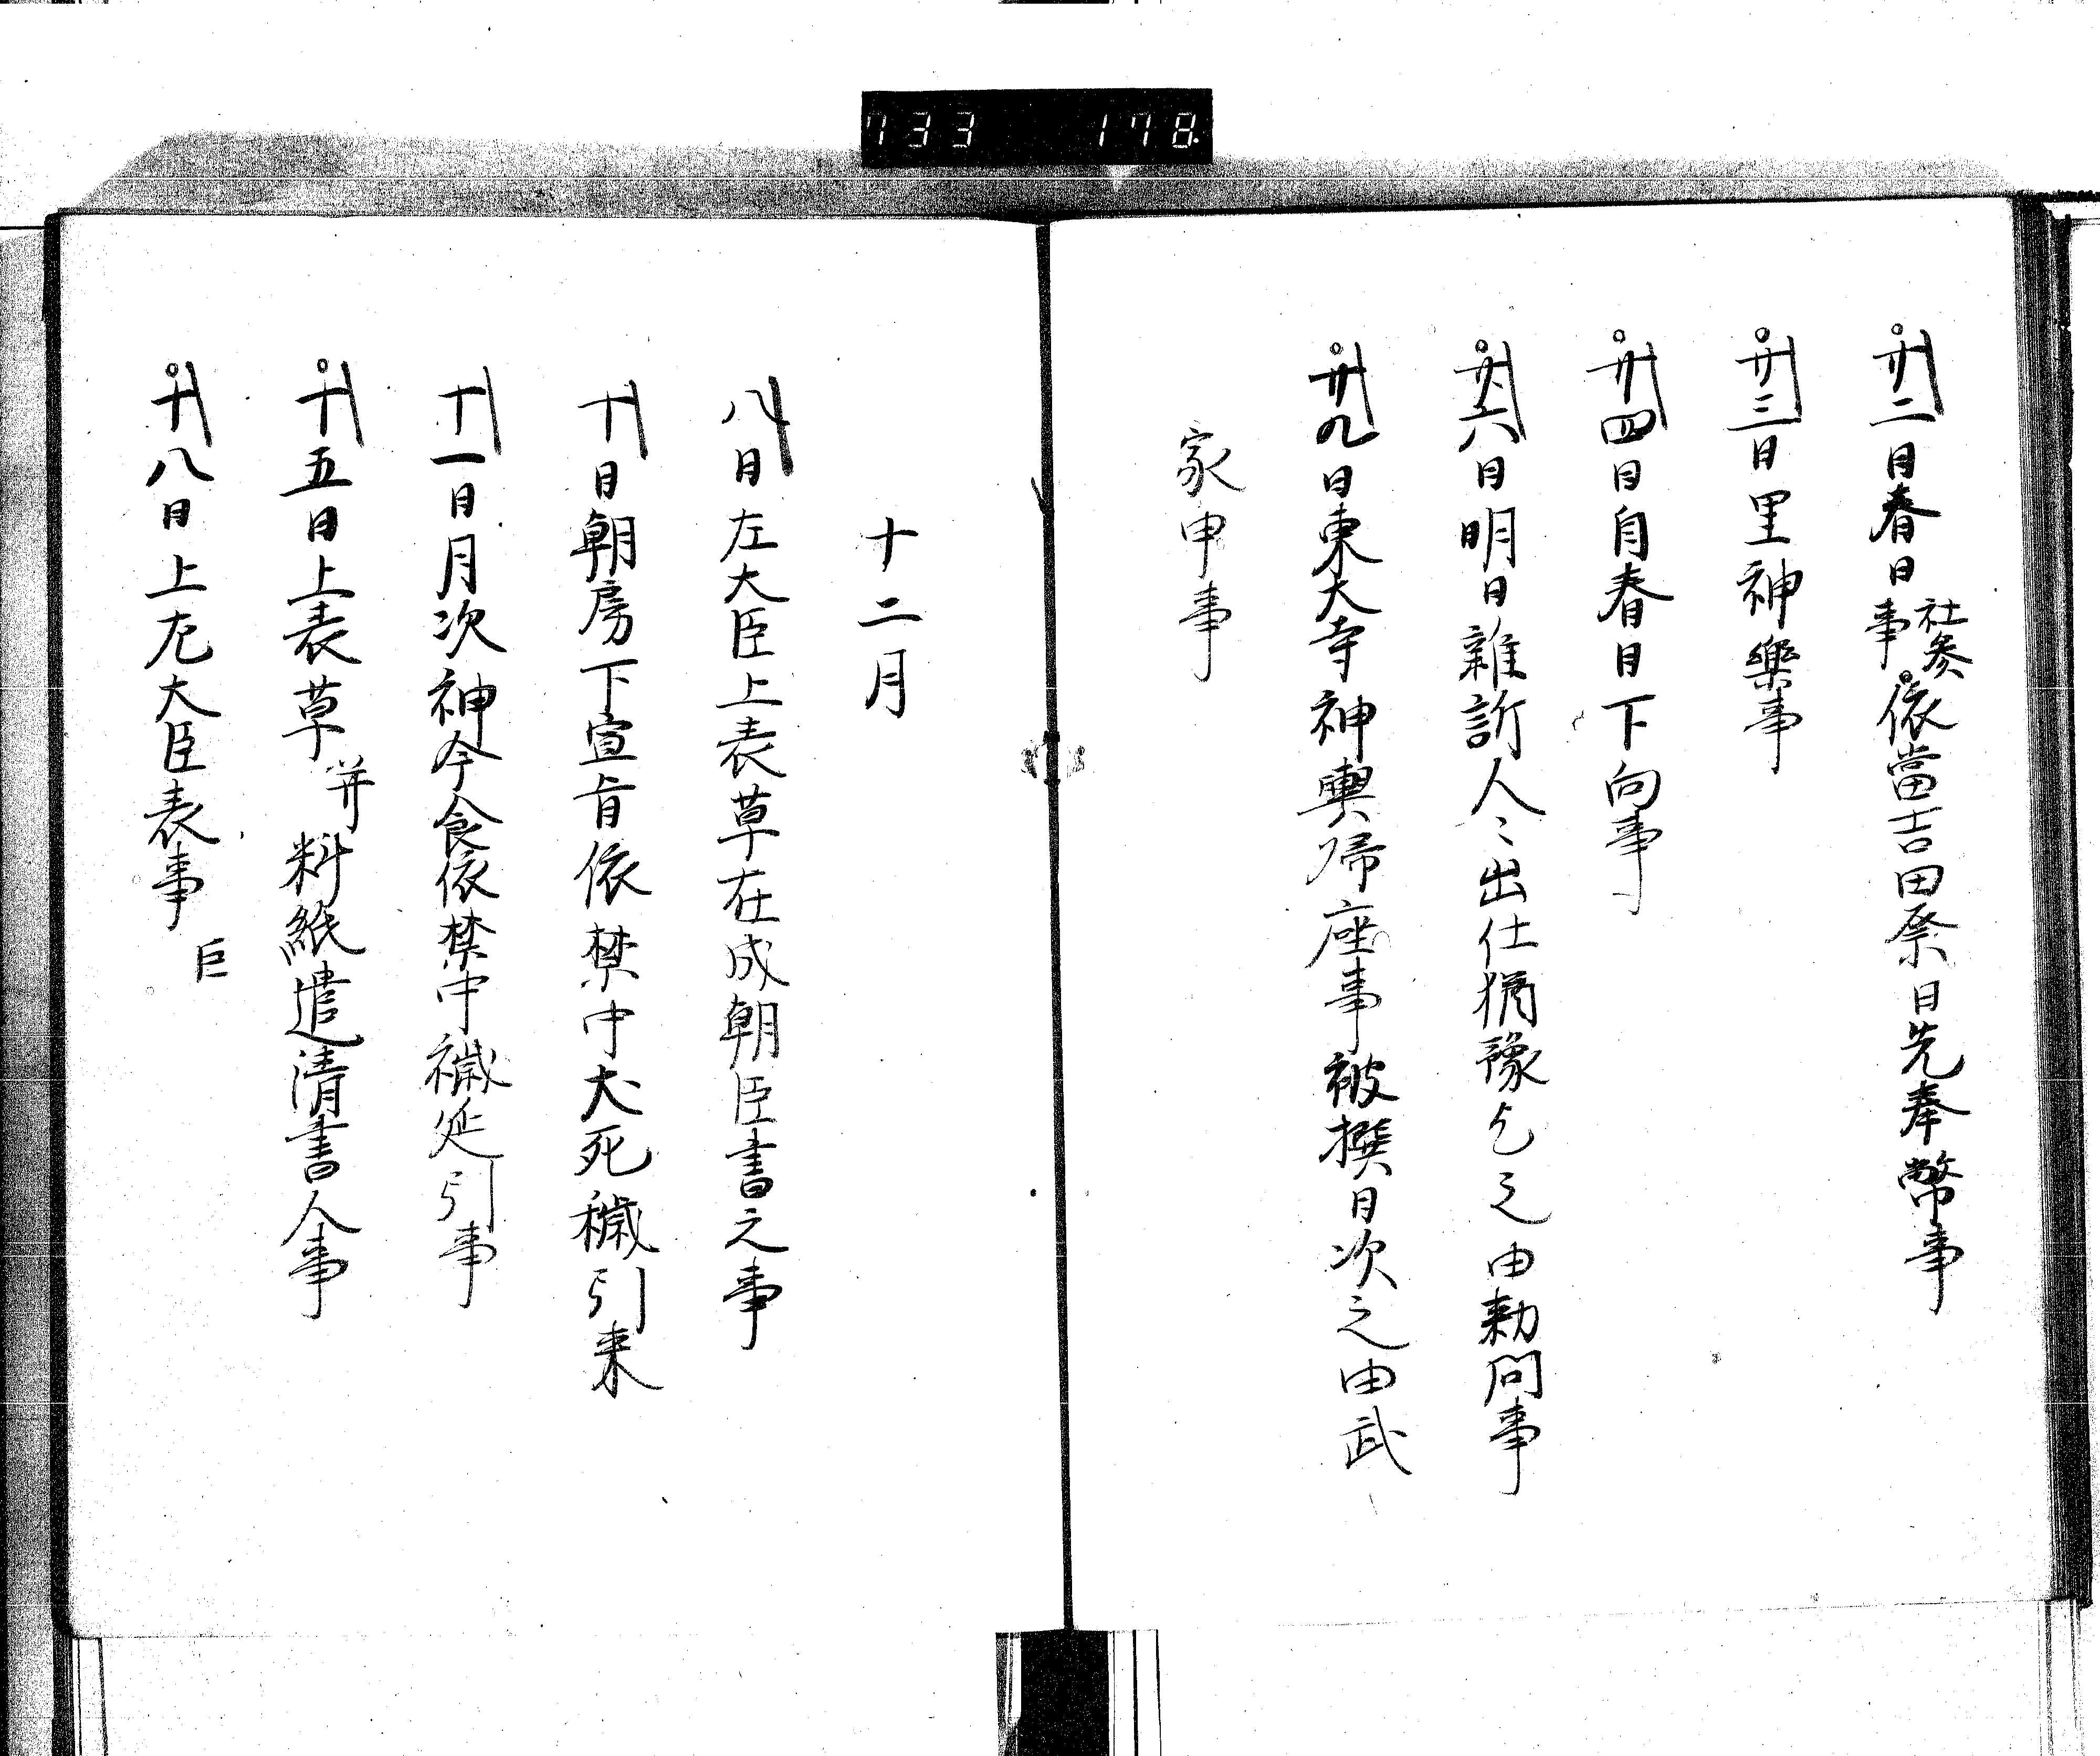 733 178
廿二日春日社参事依當吉田祭日先奉幣事
廿三日里神樂事
廿四日自春日下向事
廿六日明日雜訴人〻出仕猶豫之由勅問事
廿九日東大寺神輿帰座事被撰日次之由武
家申事
十二月
八日左大臣上表草在成朝臣書之事
十日朝房下宣旨依禁中犬死穢引来
十一日月次神今食依禁中穢延引事
十五日上表草并料紙遣清書人事
十八日上左大臣表事
臣